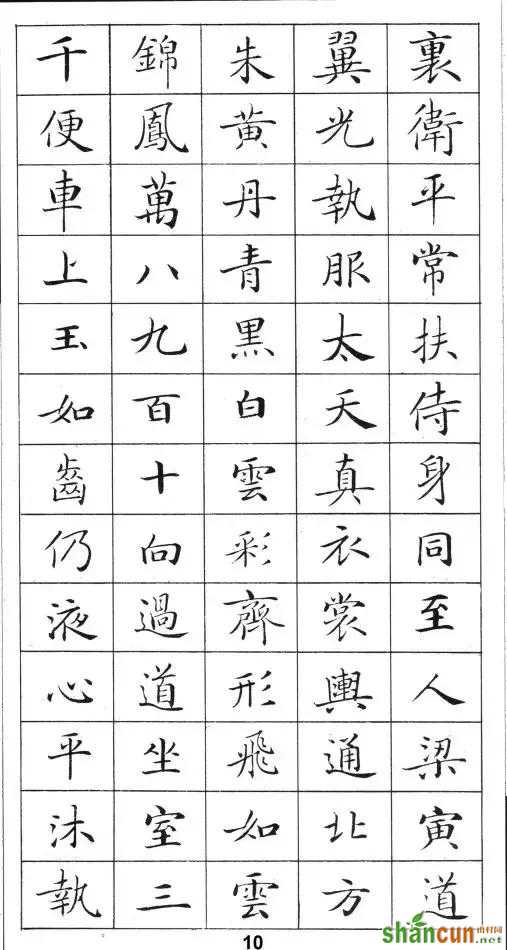 裏衛平常扶侍身同至人梁寅道
翼光執服太天真衣裳輿通北方
朱黃丹青黑白雲彩齊形飛如雲
錦鳳萬八九百十向過道坐室三
千便車上玉如齒仍液心平沐執
10
shancun
山村网
.net